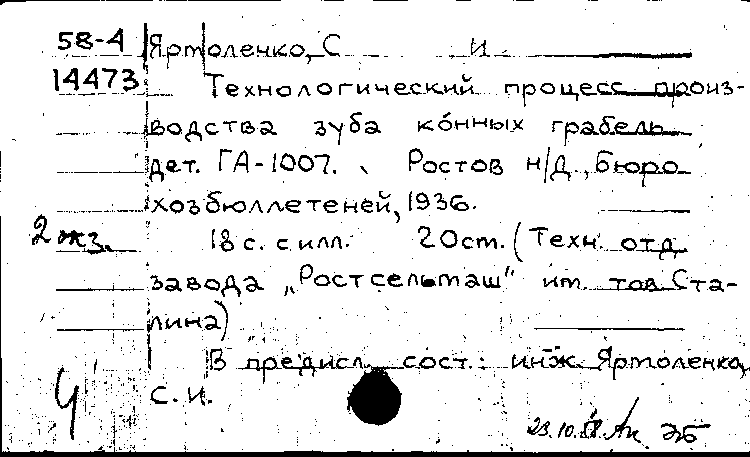 58-4 Ярмоленко, С И
14473 Технологический процесс произ-
водства зуба конных грабель
дет. ГА-1007. Ростов н/Д., Бюро
хозбюллетеней, 1936.
2 экз. 18 с. с илл. 20 см. (Техн. отд
завода „Ростсельмаш" им. тов Ста-
лина)
В предисл. сост.: инж. Ярмоленко,
С. И.
23.10.58